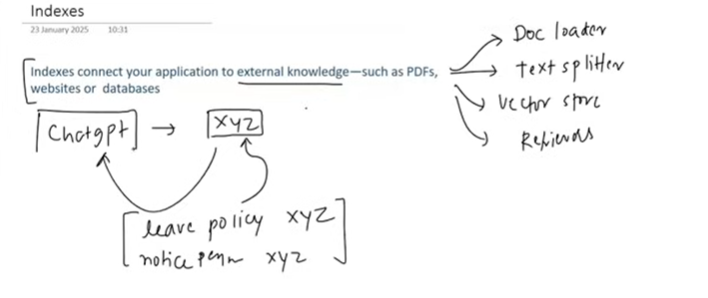 Indexes
23 January 2025 10:31
Doc loader
Indexes connect your application to external knowledge—such as PDFs,
websites or databases
Text splitter
Vector store
Chatgpt → XYZ
leave policy XYZ
notice xyz